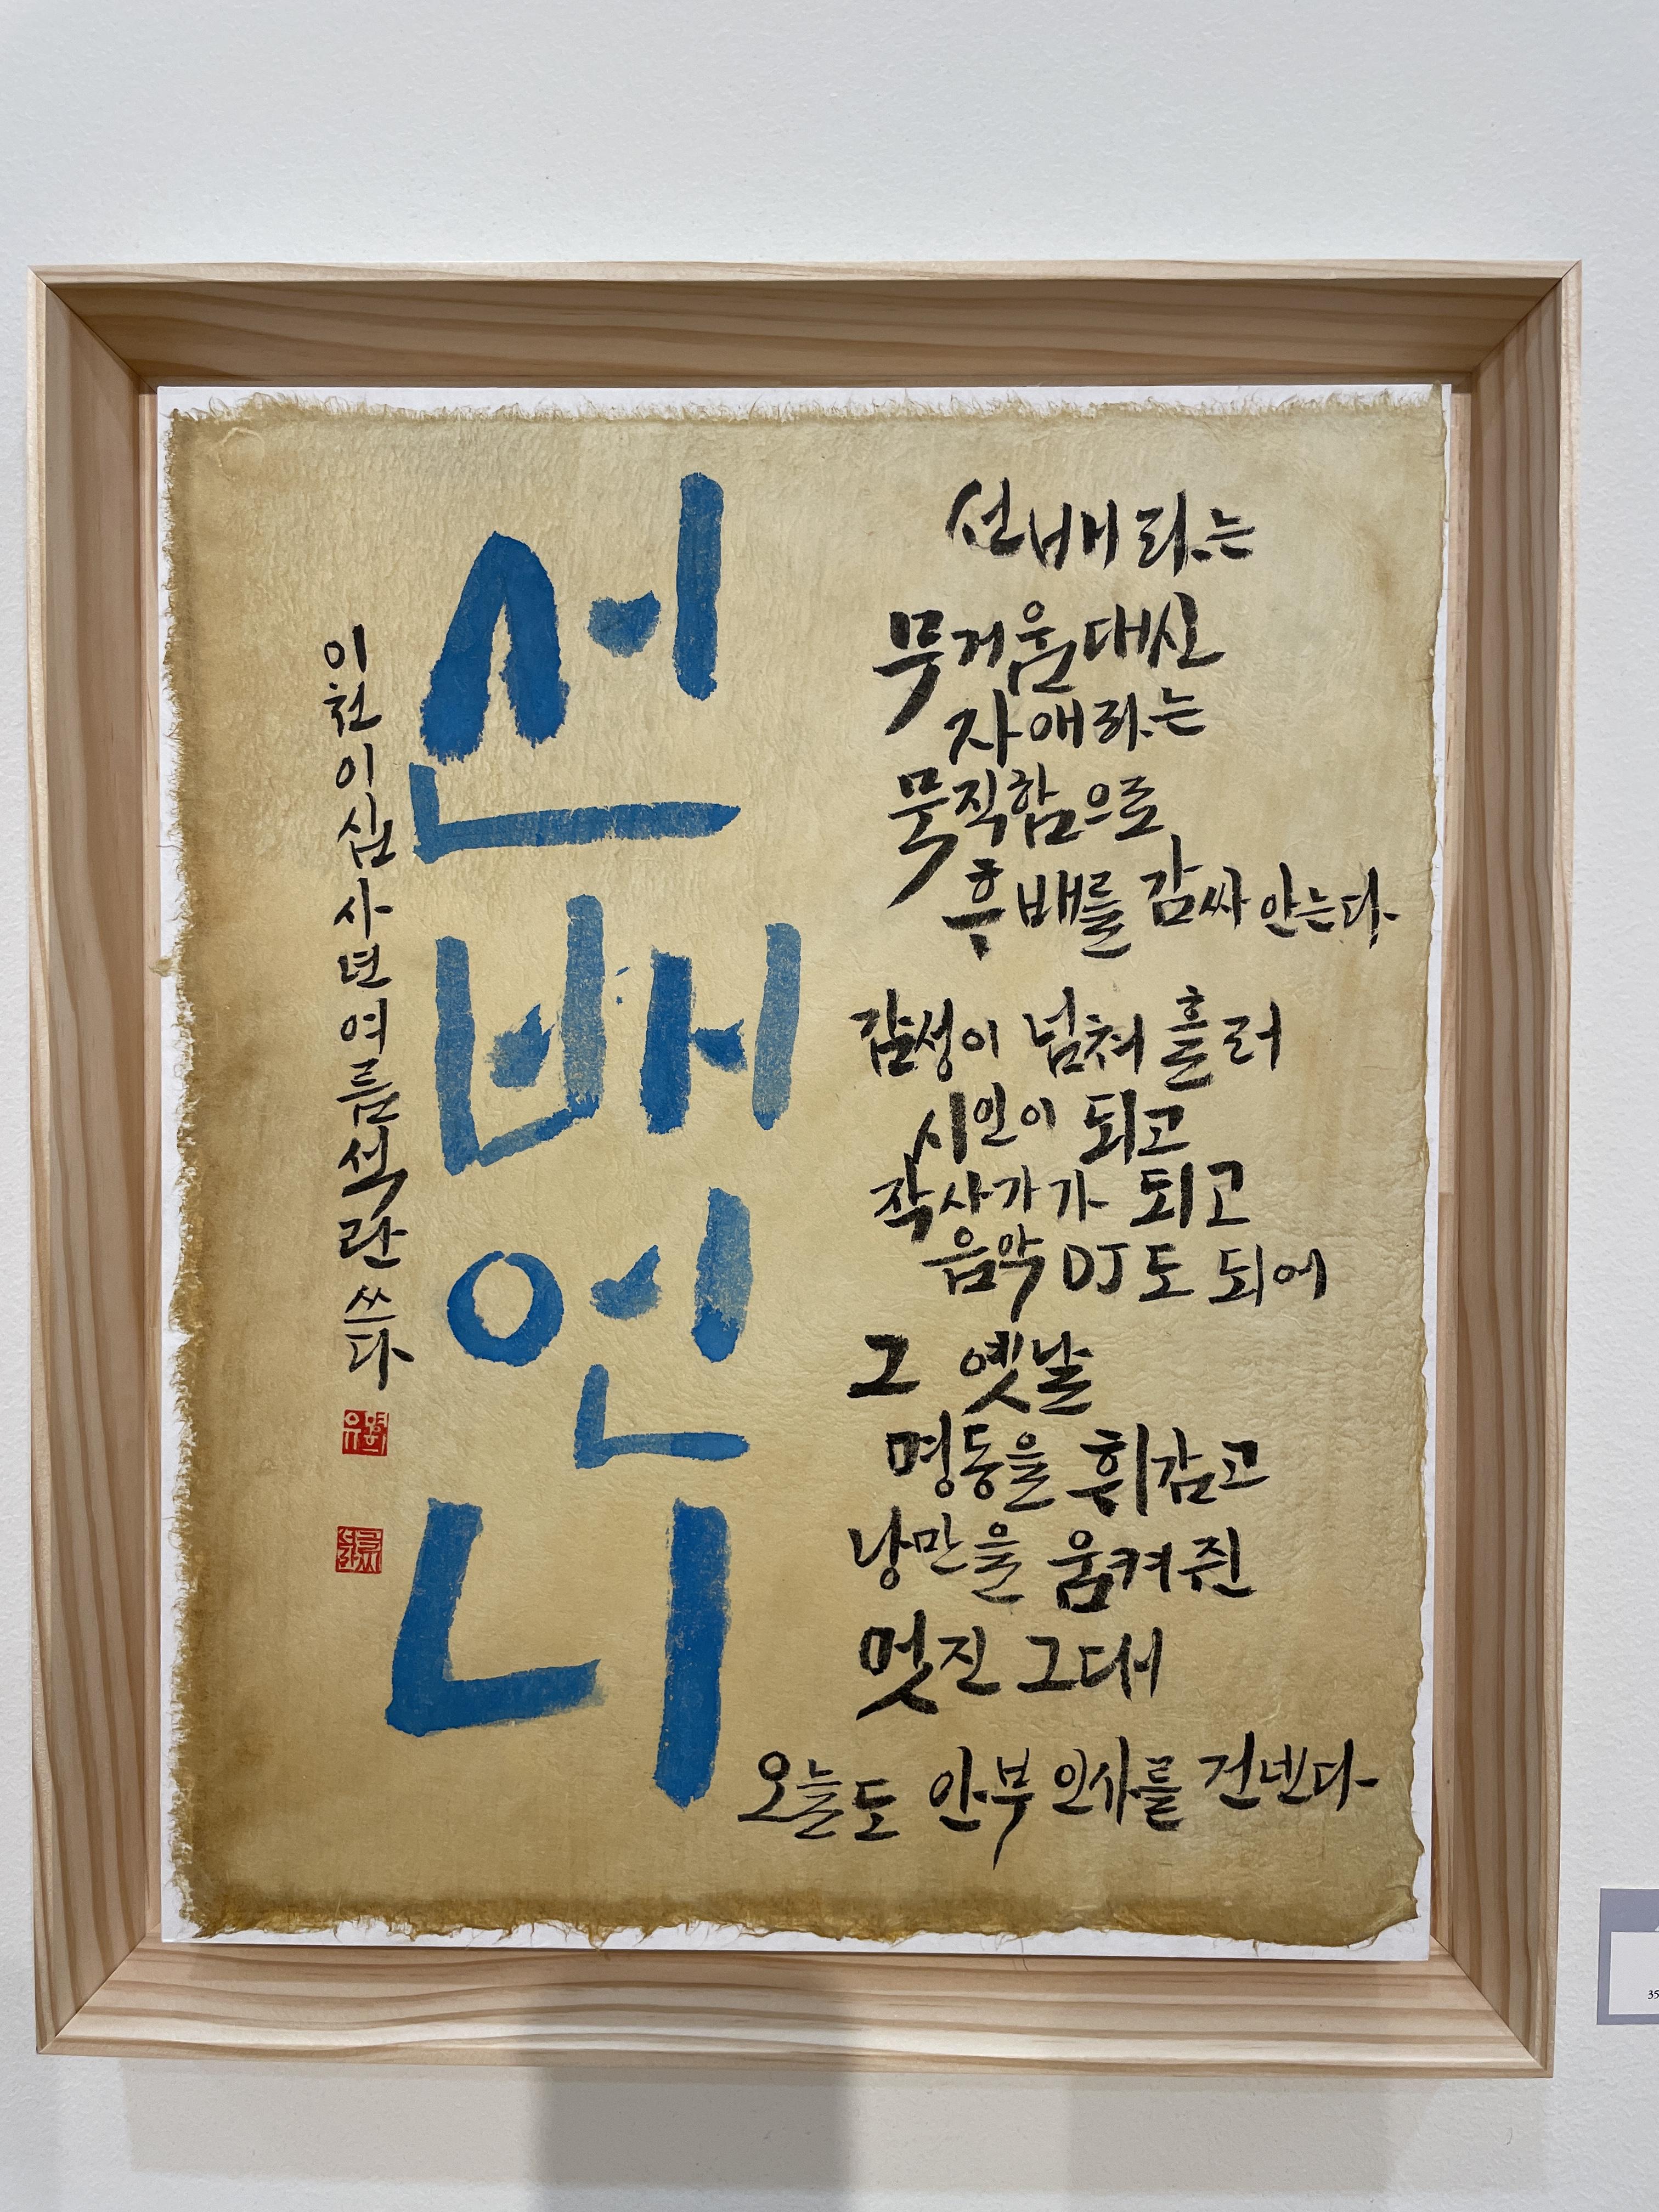 선배언니
선배라는
무거움대신
자애라는
묵직함으로
후배를 감싸안는다
감성이 넘쳐 흘러
시인이 되고
작사가가 되고
음악 DJ도 되어
그 옛날
명동을 휘감고
낭만을 움켜쥔
멋진 그대에
오늘도 안부 인사를 건넨다
이천이십사년여름석란쓰다
35